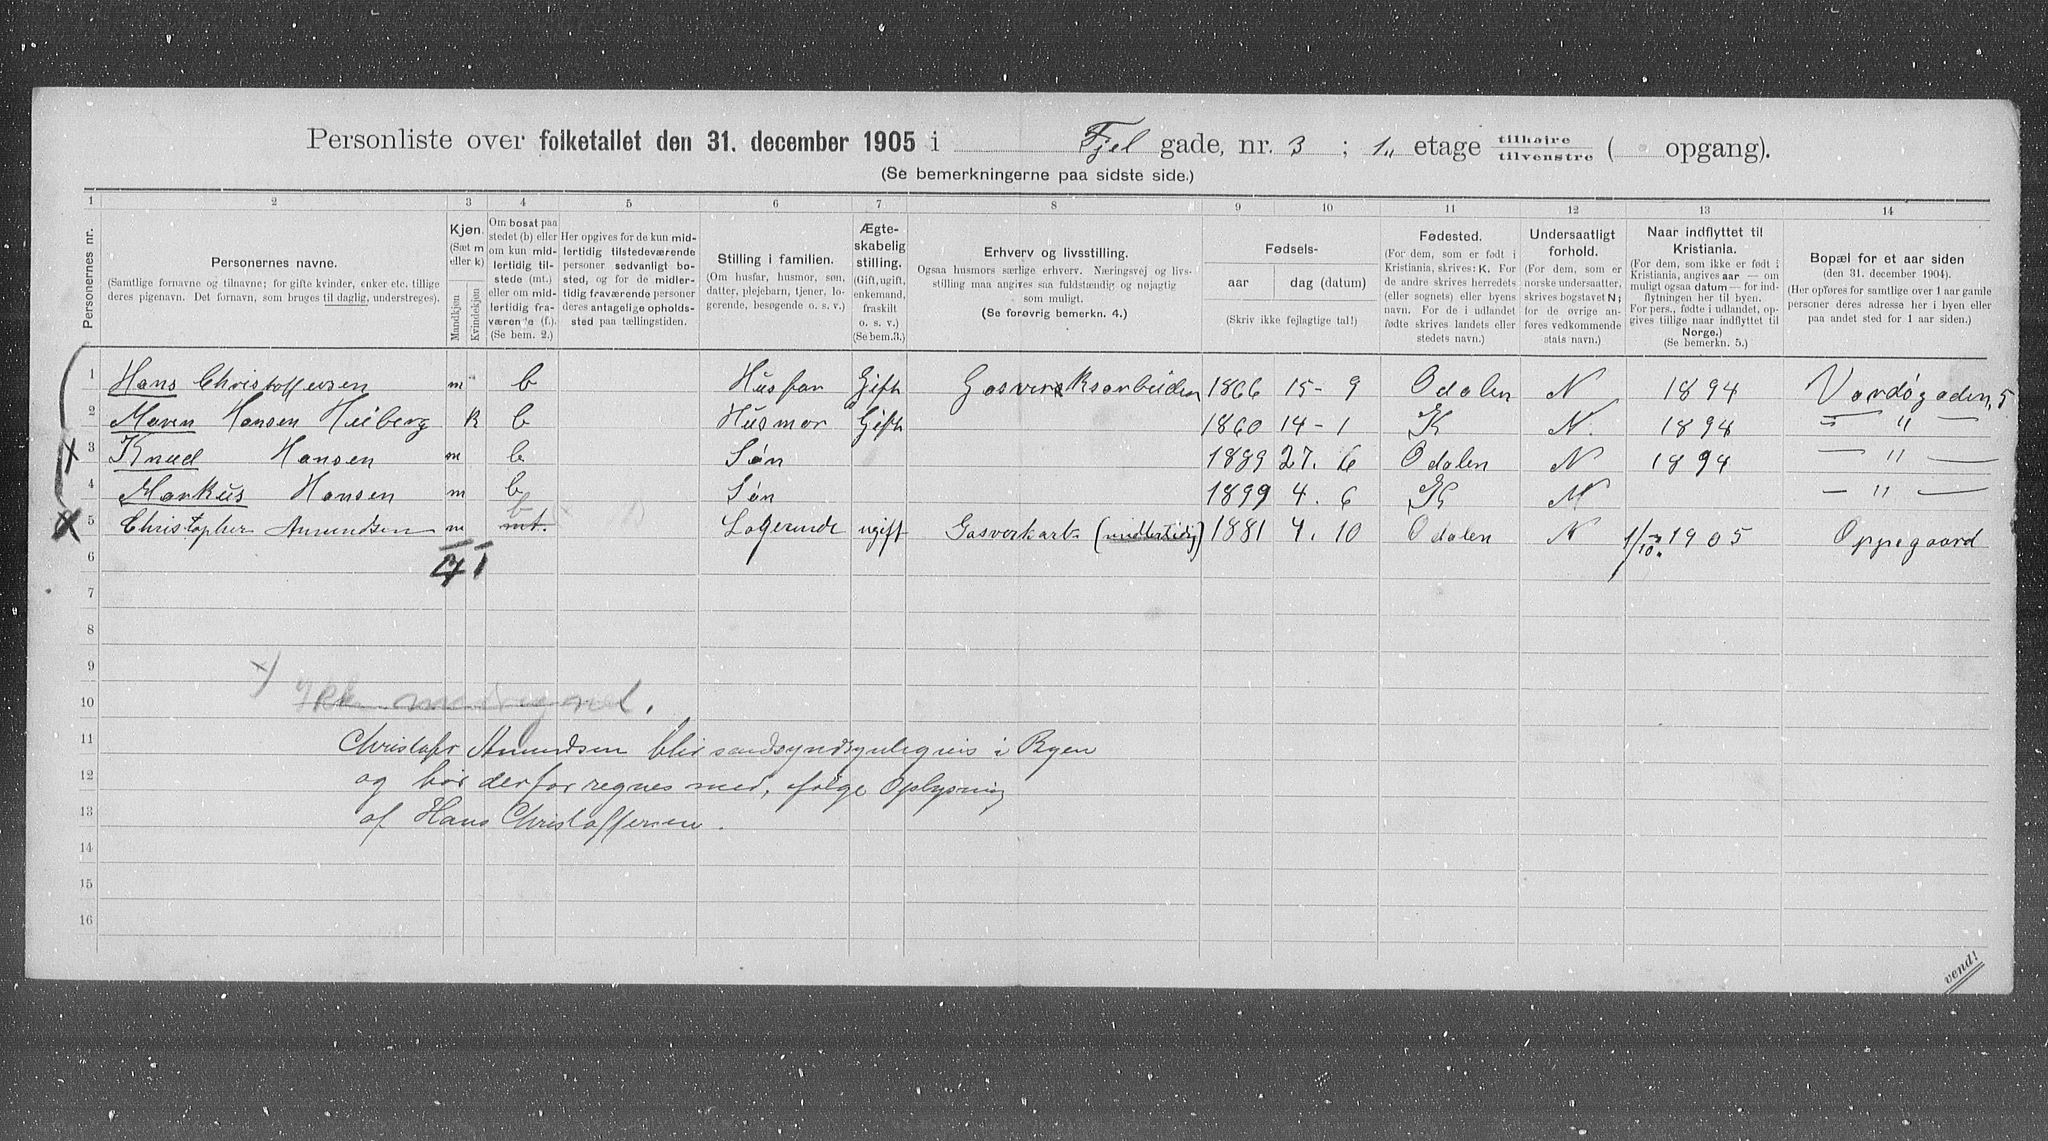 Personliste over folketallet den 31. december 1905 i Fjel gade, nr. 3 ; 1., etage tilhøire tilvenstre ( opgang).
(Se bemerkningerne paa sidste side.)
1 2 3 4 5 6 7 8 9 10 11 12 13 14
Personernes nr.
Personernes navne.
(Samtlige fornavne og tilnavne; for gifte kvinder, enker etc. tillige
deres pigenavn. Det fornavn, som bruges til daglig, understreges).
Kjøn.
(Sæt m
eller k.)
Mandkjøn
Kvindekjøn
Om bosat paa
stedet (b) eller
om kun mid-
lertidig til-
stede (mt.)
eller om mid-
lertidig fra-
værende (f.).
(Se bem. 2.)
Her opgives for de kun mid-
lertidig tilstedeværende
personer sedvanligt bo-
sted, og for de midler-
tidig fraværende personer
deres antagelige opholds-
sted paa tællingstiden.
Stilling i familien.
(Om husfar, husmor, søn,
datter, plejebarn, tjener, lo-
gerende, besøgende o. s. v.)
Ægte-
skabelig
stilling.
(Gift, ugift,
enkemand,
fraskilt
o. s. v.)
(Se bem.3.)
Erhverv og livsstilling.
Ogsaa husmors særlige erhverv. Næringsvej og livs-
stilling maa angives saa fuldstændig og nøjagtig
som muligt.
(Se forøvrig bemerkn. 4.)
Fødsels-
aar dag (datum)
(Skriv ikke fejlagtige tal!)
Fødested.
(For dem, som er født i
Kristiania, skrives: K. For
de andre skrives herredets
(eller sognets) eller byens
navn. For de i udlandet
fødte skrives landets eller
stedets navn.)
Undersaatligt
forhold.
(For dem, som er
norske undersaatter,
skrives bogstavet N;
for de øvrige an-
føres vedkommende
stats navn.)
Naar indflyttet til
Kristiania.
(For dem, som ikke er født i
Kristiania, angives aar — om
muligt ogsaa datum — for ind-
flytningen her til byen.
For pers., fødte i udlandet, op-
gives tillige naar indflyttet til
Norge.)
(Se bemerkn. 5.)
Bopæl for et aar siden
(den 31. december 1904).
(Her opføres for samtlige over 1 aar gamle
personer deres adresse her i byen eller
paa andet sted for 1 aar siden.)
1 Hans Christoffersen m b Husfar Gift Gasverksarbeider 1866 15 - 9 Odalen N 1894 Vardøgaden 5
2 Maren Hansen Heiberg k b Husmor Gift 1860 14 - 1 K N. 1894 — " —
3 Knud Hansen m b Søn 1889 27. 6 Odalen N 1894 — " —
4 Markus Hansen m b Søn 1899 4. 6 K N — " —
5 Christopher Amundsen m b mt. Logerende ugift Gasverkarb (midlertidig) 1881 4. 10 Odalen N 1/10 1905 Oppegaard
6
4 1
7
8
9
x) Ikke medregnet.
10
11 Christofr Amundsen blir sandsyndsynligvis i Byen
12 og bør derfor regnes med, følge Oplysning
13 af Hans Christoffersen.
14
15
16
vend!